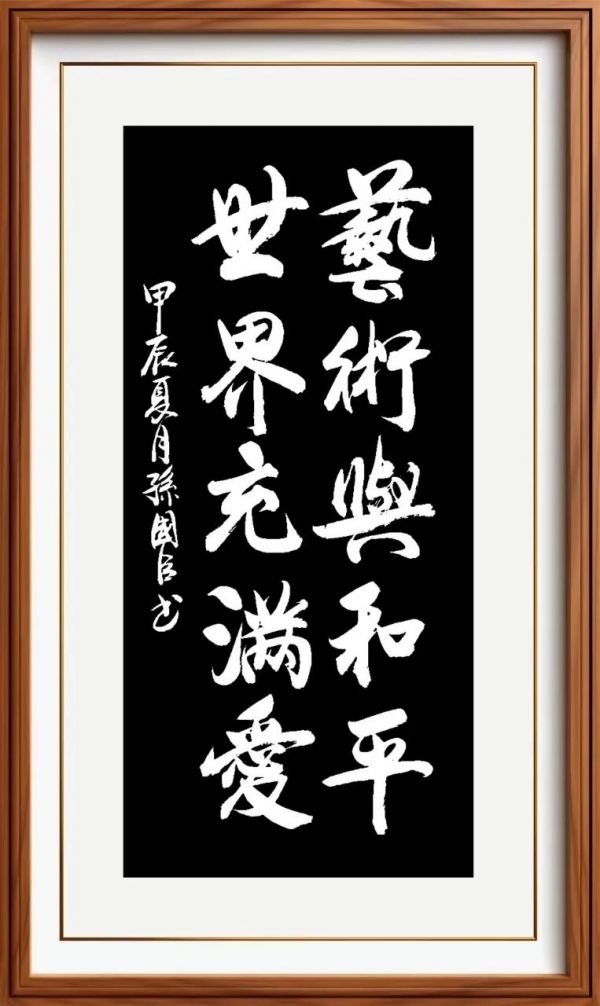 藝術與和平
世界充滿愛
甲辰夏月孫國臣书